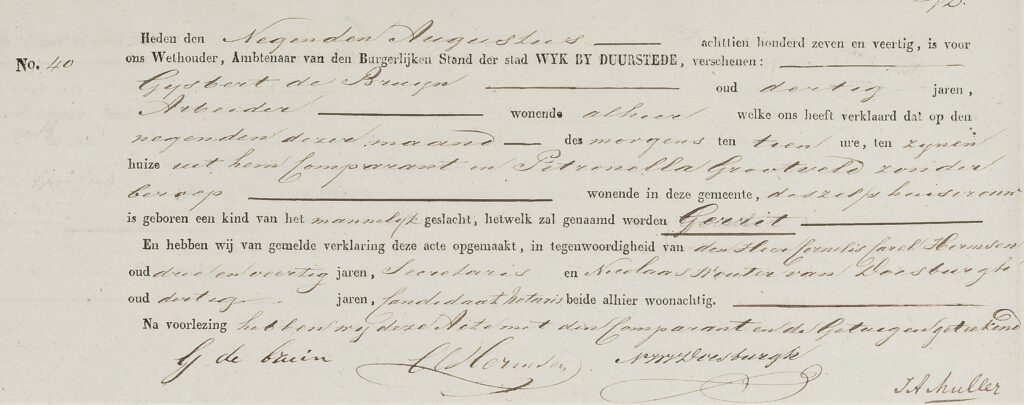 Heden den Negenden Augustus achttien honderd zeven en veertig, is voor
No. 40
ons Wethouder, Ambtenaar van den Burgerlijken Stand der stad WYK BY DUURSTEDE, verschenen:
Gysbert de Bruijn oud dertig jaren,
Arbeider wonende alhier welke ons heeft verklaard dat op den
negenden dezer maand des morgens ten tien ure, ten zynen
huize uit hem Comparant en Petronella Grootveld zonder
beroep wonende in deze gemeente, deszelfs huisvrouw
is geboren een kind van het mannelyk geslacht, hetwelk zal genaamd worden Gerrit
En hebben wij van gemelde verklaring deze acte opgemaakt, in tegenwoordigheid van den Heer Cornelis Carel Hermsen
oud drie en veertig jaren, Secretaris en Nicolaas Wouter van Doesburgh
oud dertig jaren, Candidaat Notaris beide alhier woonachtig.
Na voorlezing hebben wij deze Acte met den Comparant en de Getuigen geteekend
G de bruin CC Hermsen NWvDoesburgh
J A Muller